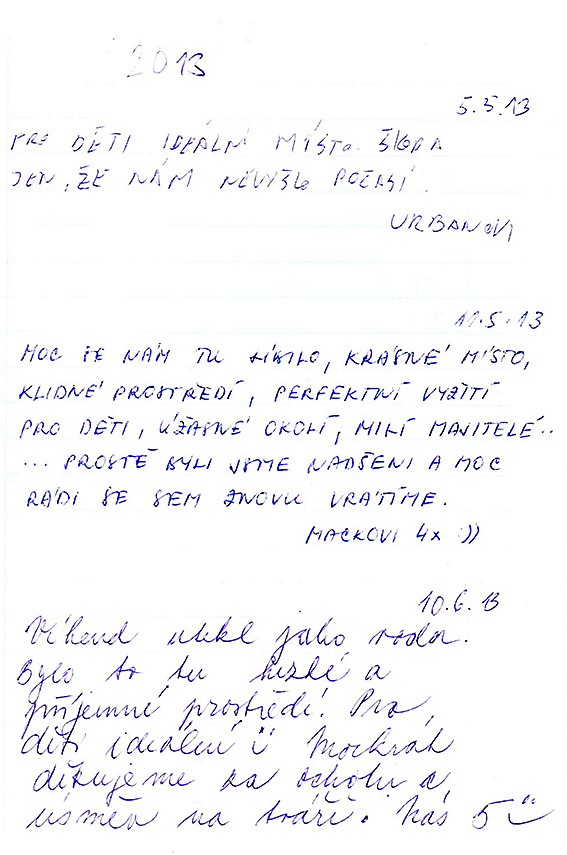 2013
5.5.13
PRO DĚTI IDEÁLNÍ MÍSTO. ŠKODA
JEN, ŽE NÁM NEVYŠLO POČASÍ.
URBANOVI
11.5.13
MOC SE NÁM TU LÍBILO, KRÁSNÉ MÍSTO,
KLIDNÉ PROSTŘEDÍ, PERFEKTNÍ VYŽITÍ
PRO DĚTI, ÚŽASNÉ OKOLÍ, MILÍ MAJITELÉ..
... PROSTĚ BYLI JSME NADŠENI A MOC
RÁDI SE SEM ZNOVU VRÁTÍME.
MACKOVI 4x :))
10.6.13
Víkend utekl jako voda.
Bylo to tu hezké a
příjemné prostředí! Pro
děti ideální ü Mockrát
děkujeme za ochotu a
úsměv na tváři. Nás 5 ü